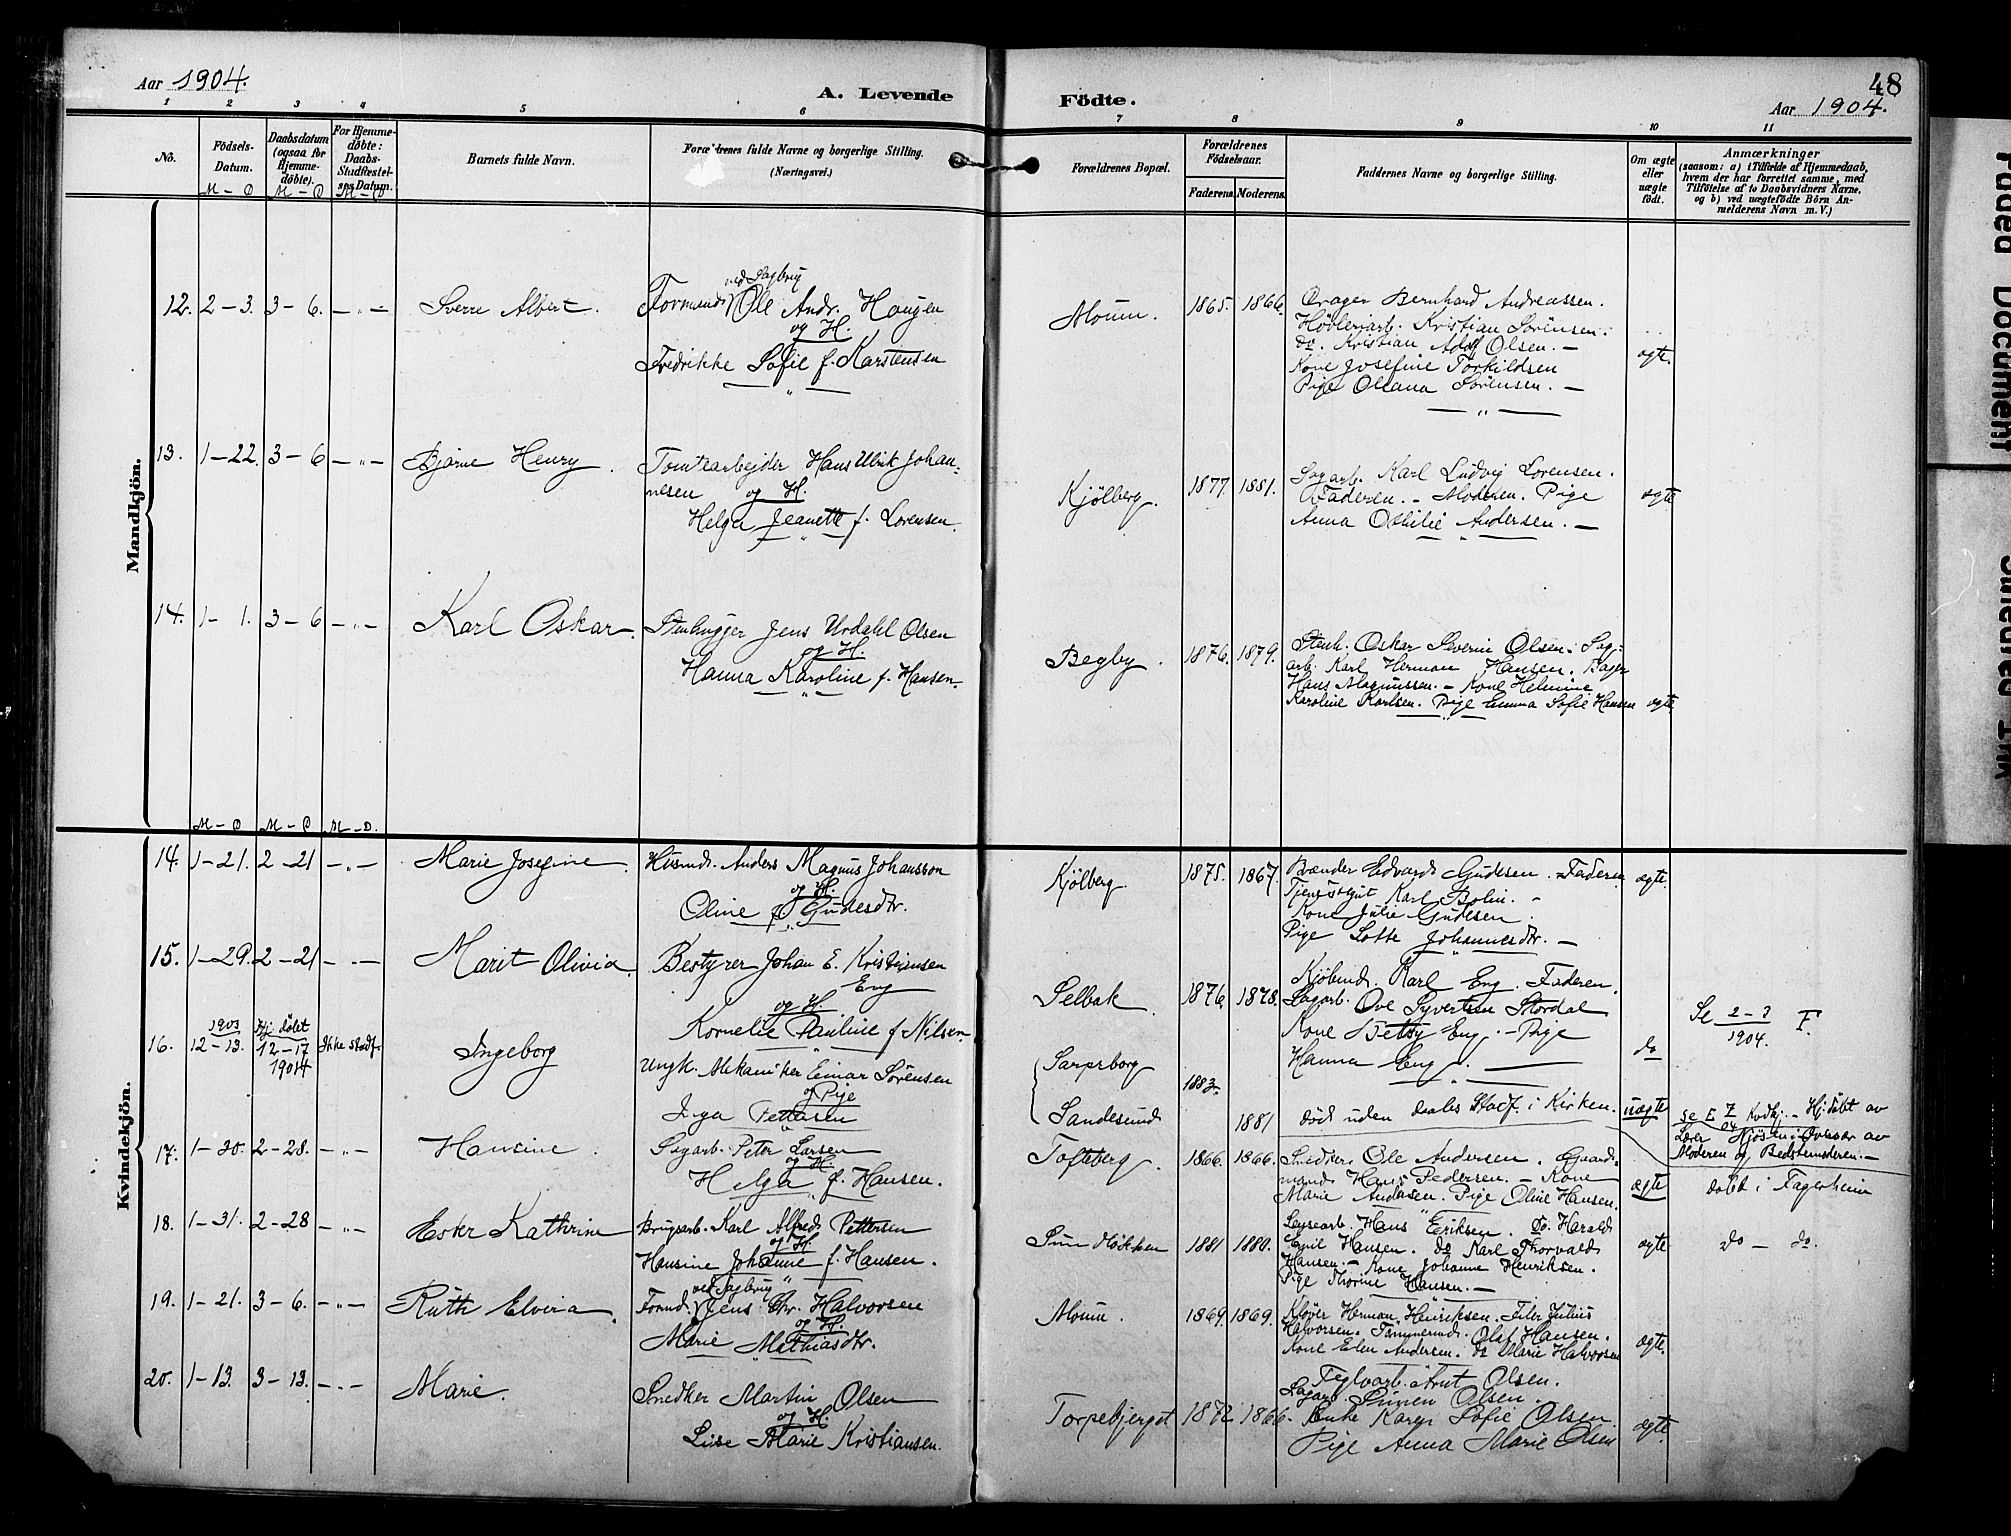 48
Aar 1904.
A. Levende
Födte.
Aar 1904.
1 2 3 4 5 6 7 8 9 10 11
No.
Födsels-Datum.
M – D
Daabsdatum (ogsaa for Hjemme-döbte).
M – D
For Hjemme-döbte: Daabs-Stadfæstel-ses Datum.
M – D
Barnets fulde Navn.
Forældrenes fulde Navne og borgerlige Stilling.
(Næringsvei.)
Forældrenes Bopæl.
Forældrenes Födselsaar.
Faderens.
Moderens.
Faddernes Navne og borgerlige Stilling.
Om ægte eller uægte födt.
Anmærkninger
(saasom: a) i Tilfælde af Hjemmedaab,
hvem der har forrettet samme, med
Tilföielse af to Daabsvidners Navne,
og b) ved uægtefödte Börn An-
melderens Navn m. V.)
Mandkjön.
12. 2–3. 3–6. –„– Sverre Albert.
ved Sagbrug
Formand Ole Andr. Haugen
og H.
Fredrikke Sofie f. Karstensen
Moum. 1865. 1866.
Drager Bernhard Andreassen.
Høvleriarb. Kristian Sørensen.
do. Kristian Adolf Olsen. –
Kone Josefine Torkildsen
Pige Oleana Sørensen. –
ægte.
13. 1–22. 3–6 –„– Bjarne Henry.
Tomtearbejder Hans Ulrik Johan-
nesen og H.
Helga Jeanette f. Lorensen.
Kjølberg. 1877. 1881.
Sagarb. Karl Ludvig Lorensen.
Faderen. – Moderen. Pige
Anna Othilie Andersen. –
ægte
14. 1–1. 3–6 –„– Karl Oskar.
Stenhugger Jens Urdahl Olsen
og H.
Hanna Karoline f. Hansen.
Begby. 1876. 1879.
Stenh. Oskar Severin Olsen. Sag-
arb. Karl Herman Hansen. Bager
Hans Magnussen. – Kone Helmine
Karoline Karlsen. Pige Emma Sofie Hansen
ægte
M – D M – D M – D.
Kvindekjön.
14. 1–21. 2–21 –„– Marie Josefine.
Husmd. Anders Magnus Johansson
og H.
Oline f. Gudesdtr.
Kjølberg 1875. 1867.
Brænder Edvard Gudesen. Faderen
Tjenestegut Karl Bolin. –
Kone Julie Gudesen.
Pige Lotte Johannesdtr. –
ægte.
15. 1–29. 2–21 –„– Marit Olivia.
Bestyrer Johan E. Kristiansen
Eng
og H.
Kornelie Pauline f. Nilsen.
Selbak 1876. 1878.
Kjøbmd. Karl Eng. Faderen.
Sagarb. Ove Syvertsen Stordal
Kone Betsy Eng. – Pige
Hanna Eng. –
do
Se 2–3 1904. F.
16. 1903 12–13. Hj. døbt 12–17 1904 Ikke stadf. Ingeborg
Ungk. Mekaniker Einar Sørensen
og Pige
Inga Pettersen
Sarpsborg
Sandesund
1883.
1881
død uden daabs Stadf. i Kirken.
uægte
Hjdøbt av
Lærer Mjøsen i Overvær av
Moderen og Bedstemoderen. –
17. 1–30. 2–28. –„– Hansine.
Sagarb. Peter Larsen
og H.
Helga f. Hansen.
Tofteberg. 1866. 1866.
Snedker Ole Andersen. Gaard-
mand Hans Pedersen. – Kone
Marie Andersen. Pige Oline Hansen.
ægte
døbt i Fagerheim
18. 1–31. 2–28 –„– Ester Kathrine
Brugsarb. Karl Alfred Pettersen
og H.
Hansine Johanne f. Hansen.
1881 1880.
Hans Eriksen. Do. Harald
Emil Hansen. do Karl Thorvald
Hansen. – Kone Johanne Henriksen.
Pige Thorine Hansen. –
ægte
do – do.
19. 1–21. 3–6. –„– Ruth Elvira.
ved Sagbrug
Formd. Jens Chr. Halvorsen
og H.
Marie Mathiasdtr.
Moum. 1869. 1869.
Kløver Herman Henriksen. Filer Julius
Halvorsen. Tømmermd. Olaf Hansen.
Kone Elen Andersen. do Marie Halvorsen
ægte.
20. 1–13. 3–13. –„– Marie.
Snedker Martin Olsen
og H.
Lise Marie Kristiansen.
Torpebjerget 1872 1866.
Teglvarb. Olsen.
Sagarb. Simen Olsen.
Enke Karen Sofie Olsen
Pige Anna Marie Olsen
ægte.
Faded Document
Smeared Ink